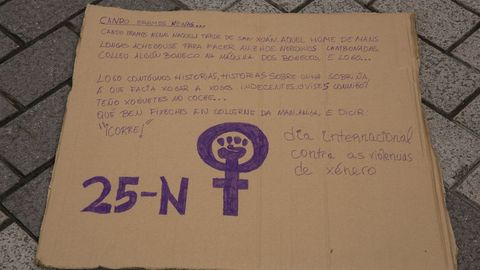 CANDO ERAMOS NENAS...
CANDO ERAMOS NENAS NAQUELA TARDE DE SAN XOÁN. AQUEL HOME DE MANS
LONGAS ACHEGOUSE PARA FACER
COLLEU ALGÚN BONECO NA MÁQUINA DOS BONECOS, E LOGO...
LOGO CONTOUNOS HISTORIAS, HISTORIAS SOBRE UNHA SOBRIÑA,
Á QUE FACÍA XOGAR A XOGOS INDECENTES. VIVES CONMIGO?
TEÑO XOGUETES NO COCHE...
QUE BEN FIXECHES EN COLLERNE DA MAN, ANGA, E DICIR
"¡CORRE!
25-N
día internacional
contra as violencias
de xénero